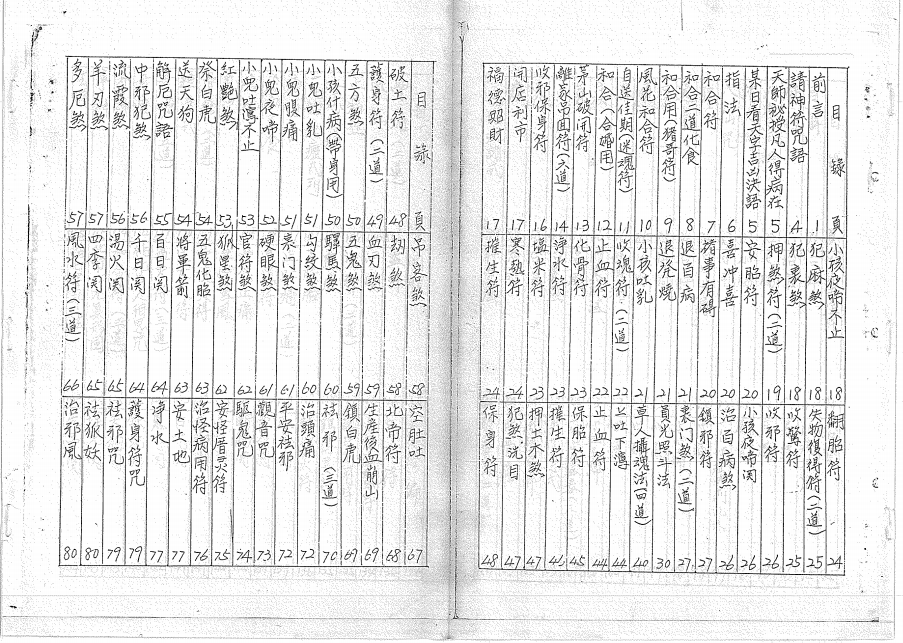 目錄 頁
前言 1
請神符咒語 4
天師秘授凡人得病在 5
某日看天字吉凶決語 5
指法 6
和合符 7
和合二道化食 8
和合用(豬哥符) 9
風花和合符 10
自送佳期(迷魂符) 11
和合(合婚用) 12
茅山破開符 13
離豕吊回符(六道) 14
收邪保身符 16
開店利市 17
福德賜財 17
小孩夜啼不止 18
犯麻煞 18
犯喪煞 18
押煞符(二道) 19
安胎符 20
喜冲喜 20
猪事有碍 20
退百病 21
退發燒 21
小孩吐乳 21
收魂符(二道) 22
止血符 22
化骨符 23
淨水符 23
塩米符 23
寒熱符 24
催生符 24
翻胎符 24
失物復得符(二道) 25
收驚符 25
收邪符 26
小孩夜啼関 26
治百病煞 26
鎖邪符 27
喪门煞(二道) 27
員光照斗法 30
草人攝魂法(四道) 40
上吐下瀉 44
止血符 44
保胎符 45
催生符 46
押土木煞 47
犯煞洗目 47
保身符 48
目錄 頁
破土符 48
護身符(二道) 49
五方煞 50
小孩什病(帶身用) 50
小兒吐乳 51
小兒腹痛 51
小兒夜啼 52
小兒吐瀉不止 53
紅艷煞 53
祭白虎 54
送天狗 54
解厄咒語 55
中邪犯煞 56
流霞煞 56
羊刃煞 57
多厄煞 57
吊客煞 58
刼煞 58
血刃煞 59
五鬼煞 59
驛馬煞 60
勾絞煞 60
喪门煞 61
硬眼煞 61
官符煞 62
狐狸煞 62
五鬼化胎 63
將軍箭 63
百日関 64
千日関 64
湯火関 65
四季関 65
風水符(三道) 66
空肚吐 67
北帝符 68
生産後血崩山 69
鎖白虎 69
祛邪(三道) 70
治頭痛 72
平安祛邪 72
觀音咒 73
驅鬼咒 74
安怪厝灵符 75
治怪病用符 76
安土地 77
净水 77
護身符咒 79
祛邪咒 79
祛狐妖 80
治邪風 80